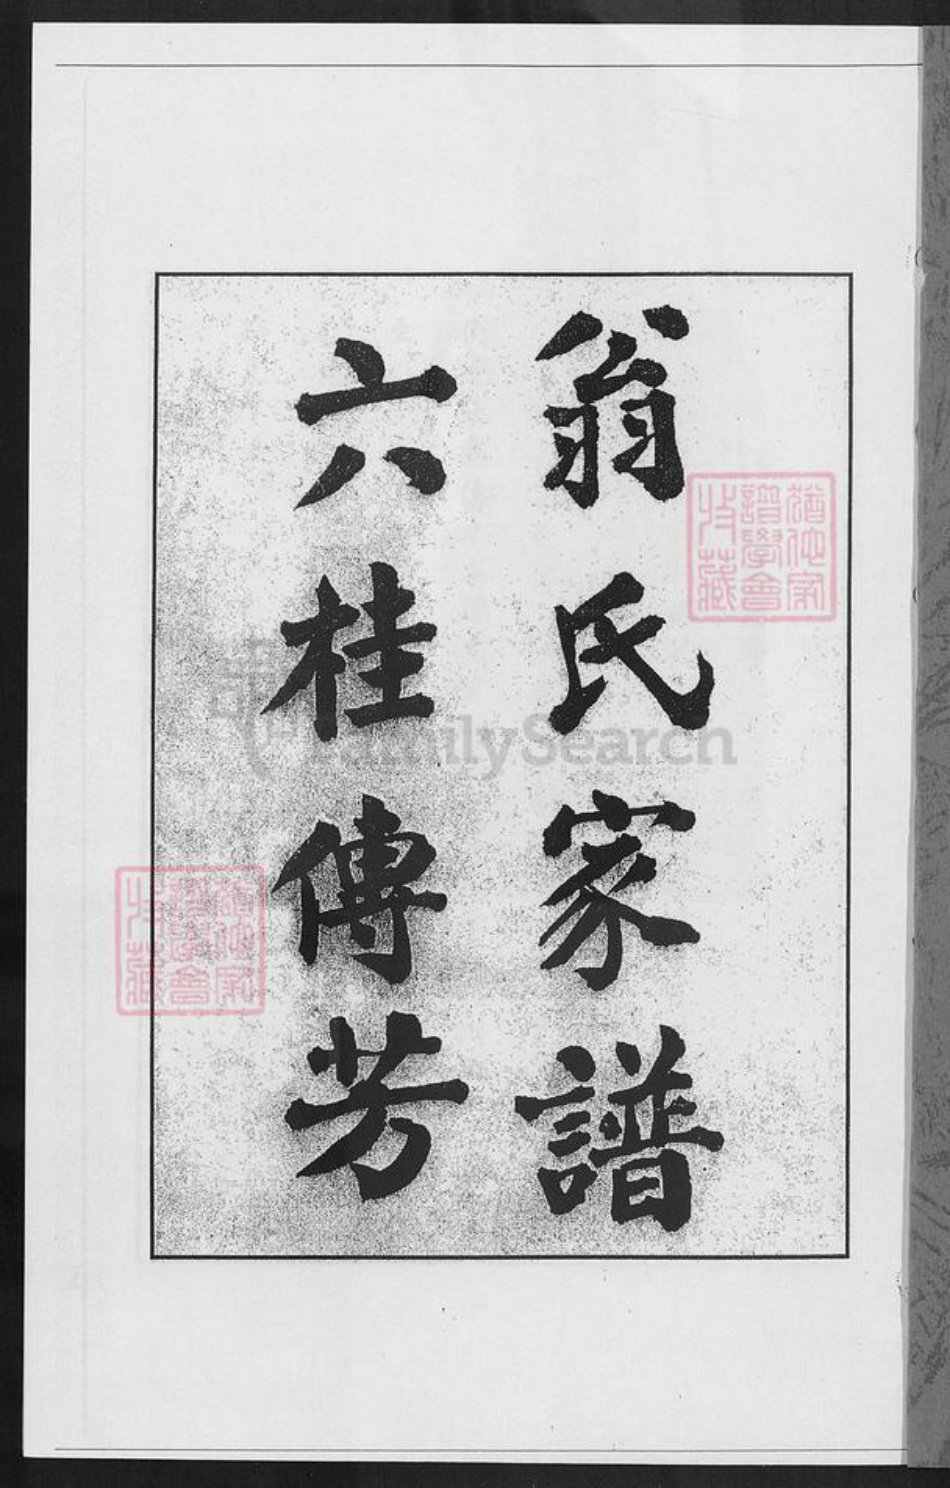 翁氏家譜
六桂傳芳
猶他家
譜學會
收藏
猶他家
譜學會
收藏
FamilySearch